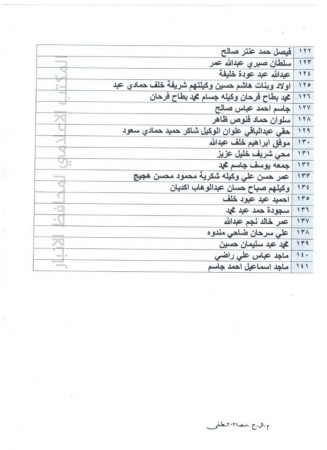 ١٢٢ فيصل حمد عنتر صالح
١٢٣ سلطان صبري عبدالله عمر
١٢٤ عبدالله عبد عودة خليفة
١٢٥ اولاد وبنات هاشم حسين وكيلتهم شريفة خلف حمادي عبد
١٢٦ محمد بطاح فرحان وكيله جسام محمد بطاح فرحان
١٢٧ جاسم احمد عباس صالح
١٢٨ سلوان حماد فنوص ظاهر
١٢٩ حقي عبدالباقي علوان الوكيل شاكر حميد حمادي سعود
١٣٠ موفق ابراهيم خلف عبدالله
١٣١ محي شريف خليل عزيز
١٣٢ جمعه يوسف جاسم محمد
١٣٣ عمر حسن علي وكيله شكرية محمود محسن هجيج
١٣٤ وكيلهم صباح حسان عبدالوهاب اكديان
١٣٥ احميد عبد عبود خلف
١٣٦ سجودة حمد عبد محمد
١٣٧ عمر خالد نجم عبدالله
١٣٨ علي سرحان ضاحي مندوه
١٣٩ محمد عبد سليمان حسين
١٤٠ ماجد عباس علي راضي
١٤١ ماجد اسماعيل احمد جاسم
المكتب الاعلامي لمحافظ الانبار